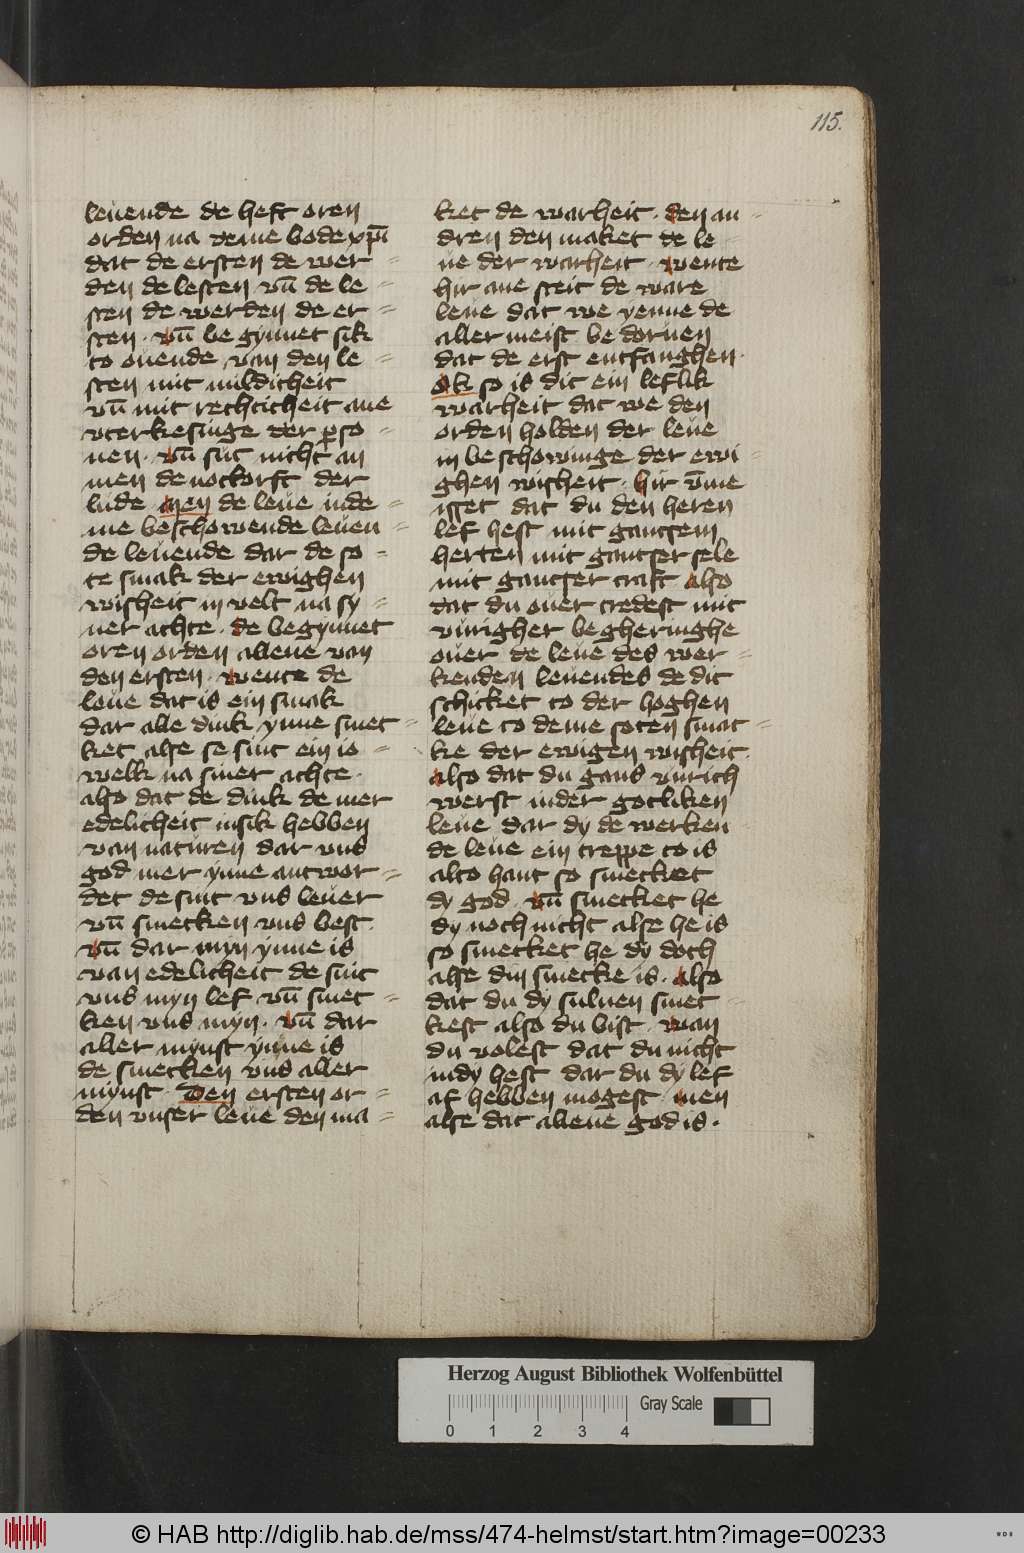 115.
leuende de heft oren
orden na deme bode xp̄i
dat de ersten de wer=
den de lesten vn̄ de le=
sten de werden de er=
sten · vn̄ be gynnet sik
to ouende van den le=
sten mit mildicheit
vn̄ mit rechticheit ane
vterkesinge der ꝑso=
nen · vn̄ sut nicht an
men de nottorft der
lude · men de leue inde=
me beschowende leuen=
de leuende dar de so=
te smak der ewighen
wisheit in velt na sy=
ner achte · de begynnet
oren orden alleue van
den ersten · wente de
leue dat is ein smak
dar alle dink ynne smet=
ket alse se sint ein io=
welk na siner achte ·
also dat de dink de mer
edelicheit insik hebben
van naturen dar vns
god mer ynne antwor=
det de sint vns leuer
vn̄ smecken vns best ·
vn̄ dar myn ynne is
van edelicheit de sint
vns myn lef vn̄ smet=
ken vns myn · vn̄ dar
aller mynst ynne is
de smecken vns aller
mynst · Den ersten or=
den vnser leue den ma=
ket de warheit · den an=
dren den maket de le=
ue der warheit · wente
hir ane steit de ware
leue dat we yenne de
aller meist be doruen
dat de erst entfanghen ·
ok so is dit ein leflik
warheit dat we den
orden holden der leue
in be schowinge der ewi=
ghen wisheit · hir v̄me
isset dat du den heren
lef hest mit gantsem
herten mit gantser sele
mit gantser craft also
dat du ouer tredest mit
vurigher be gheringhe
ouer de leue des wer=
kenden leuendes de dit
schicket to der hoghen
leue to deme soten smat=
ke der ewigen wisheit ·
also dat du gans vurich
werst inder gotliken
leue dar dy de werken=
de leue ein treppe to is
alto hant so smecket
dy god · vn̄ smecket he
dy noch nicht alse he is
so smecket he dy doch
alse din smecke is · also
dat du dy suluen smet=
kest also du bist · wan
du volest dat du nicht
indy hest dar du dy lef
af hebben mogest · men
alse dat alleue god is ·
Herzog August Bibliothek Wolfenbüttel
Gray Scale
0 1 2 3 4
© HAB http://diglib.hab.de/mss/474-helmst/start.htm?image=00233